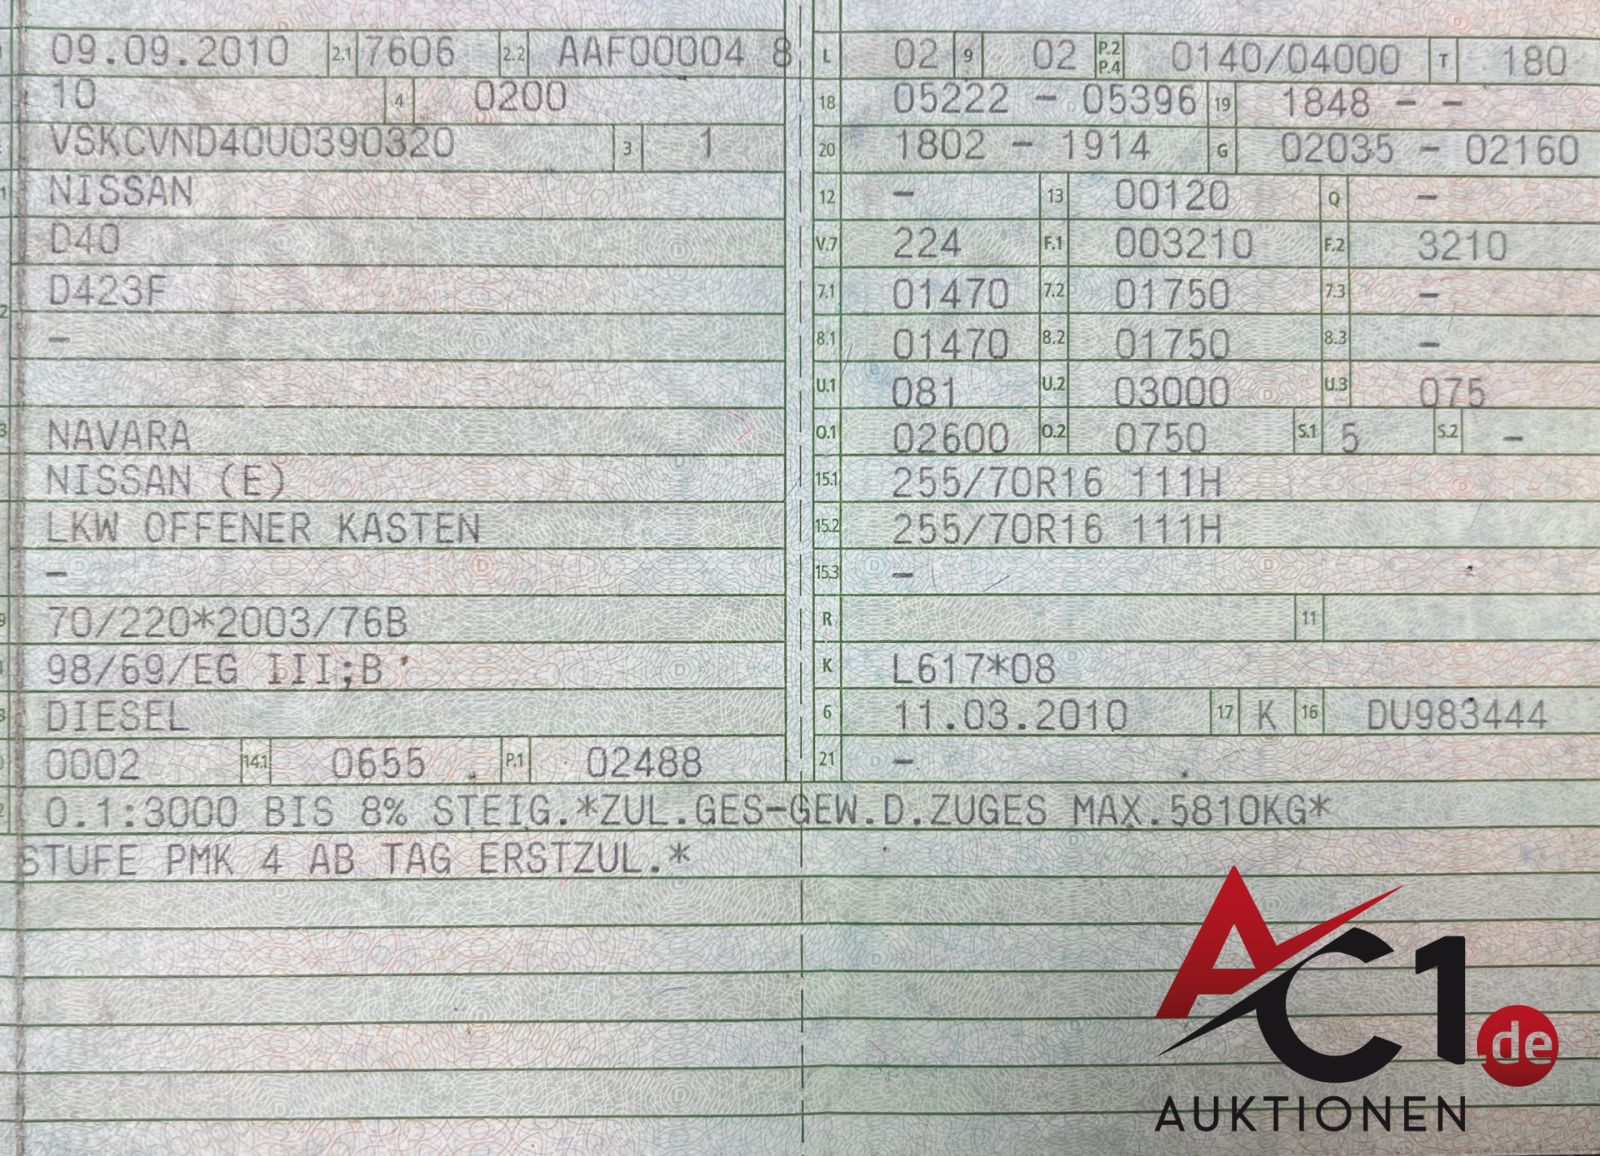 09.09.2010 2.1 7606 2.2 AAF00004 8
10 4 0200
VSKCVND40U0390320 3 1
NISSAN
D40
D423F
–
NAVARA
NISSAN (E)
LKW OFFENER KASTEN
–
70/220*2003/76B
98/69/EG III;B
DIESEL
0002 14.1 0655 P.1 02488
L 02 9 02 P.2 P.4 0140/04000 T 180
18 05222 – 05396 19 1848 – –
20 1802 – 1914 G 02035 – 02160
12 – 13 00120 Q –
V.7 224 F.1 003210 F.2 3210
7.1 01470 7.2 01750 7.3 –
8.1 01470 8.2 01750 8.3 –
U.1 081 U.2 03000 U.3 075
O.1 02600 O.2 0750 S.1 5 S.2 –
15.1 255/70R16 111H
15.2 255/70R16 111H
15.3 –
R 11
K L617*08
6 11.03.2010 17 K 16 DU983444
21 –
O.1:3000 BIS 8% STEIG.*ZUL.GES-GEW.D.ZUGES MAX.5810KG*
STUFE PMK 4 AB TAG ERSTZUL.*
AC1.de
AUKTIONEN